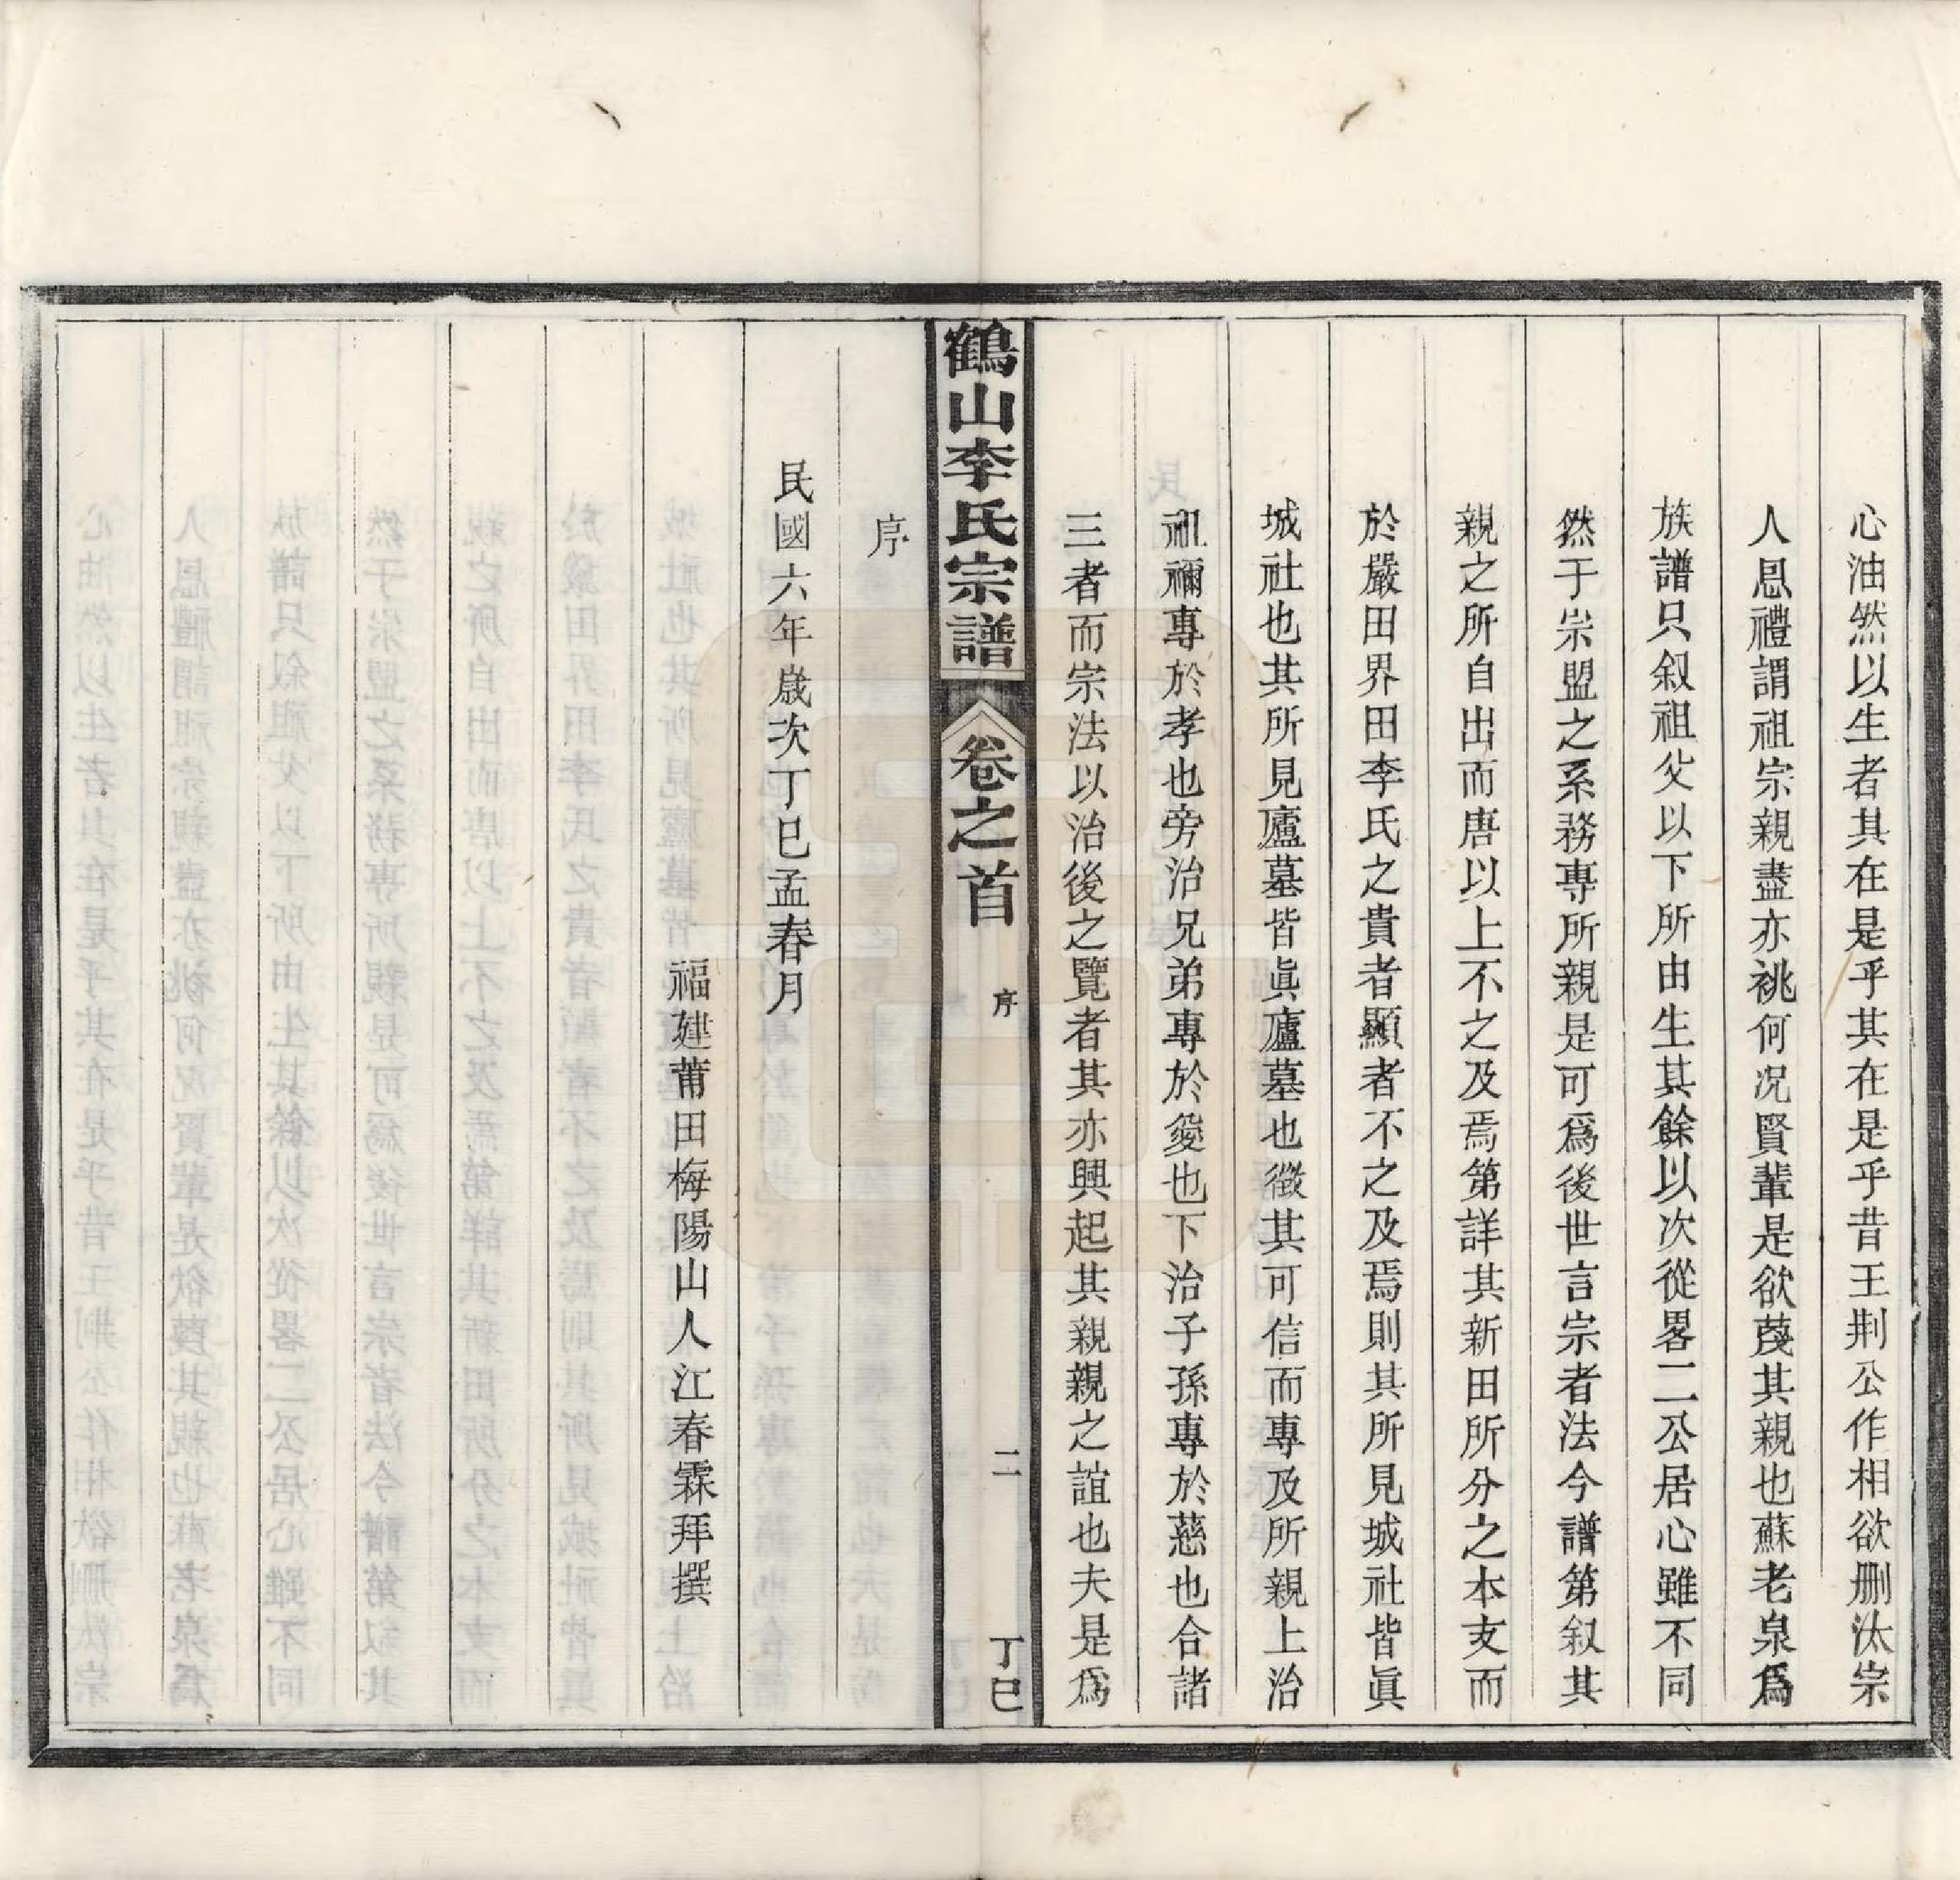 心油然以生者其在是乎其在是乎昔王荆公作相欲刪汰宗
人恩禮謂祖宗親盡亦祧何况賢輩是欲薄其親也蘇老泉爲
族譜只叙祖父以下所由生其餘以次從畧二公居心雖不同
然于宗盟之系務專所親是可爲後世言宗者法今譜第叙其
親之所自出而唐以上不之及焉第詳其新田所分之本支而
於嚴田界田李氏之貴者顯者不之及焉則其所見城社皆眞
城社也其所見廬墓皆眞廬墓也徵其可信而專及所親上治
祖禰專於孝也旁治兄弟專於愛也下治子孫專於慈也合諸
三者而宗法以治後之覽者其亦興起其親親之誼也夫是爲
鶴山李氏宗譜 卷之首 序 二 丁巳
序
民國六年歲次丁巳孟春月
福建莆田梅陽山人江春霖拜撰